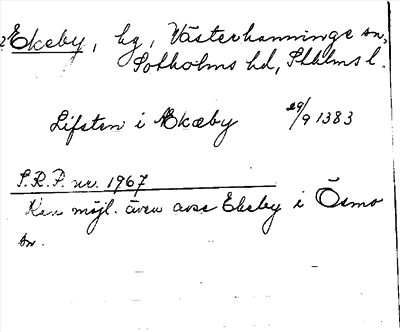 Ekeby, hg, Västerhanninge sn,
Sotholms hd, Sthlms l.
Lifsten i Ekæby 29/9 1383
S.R.P. nr. 1967
Kan möjl. även avse Ekeby i Ösmo
sn.